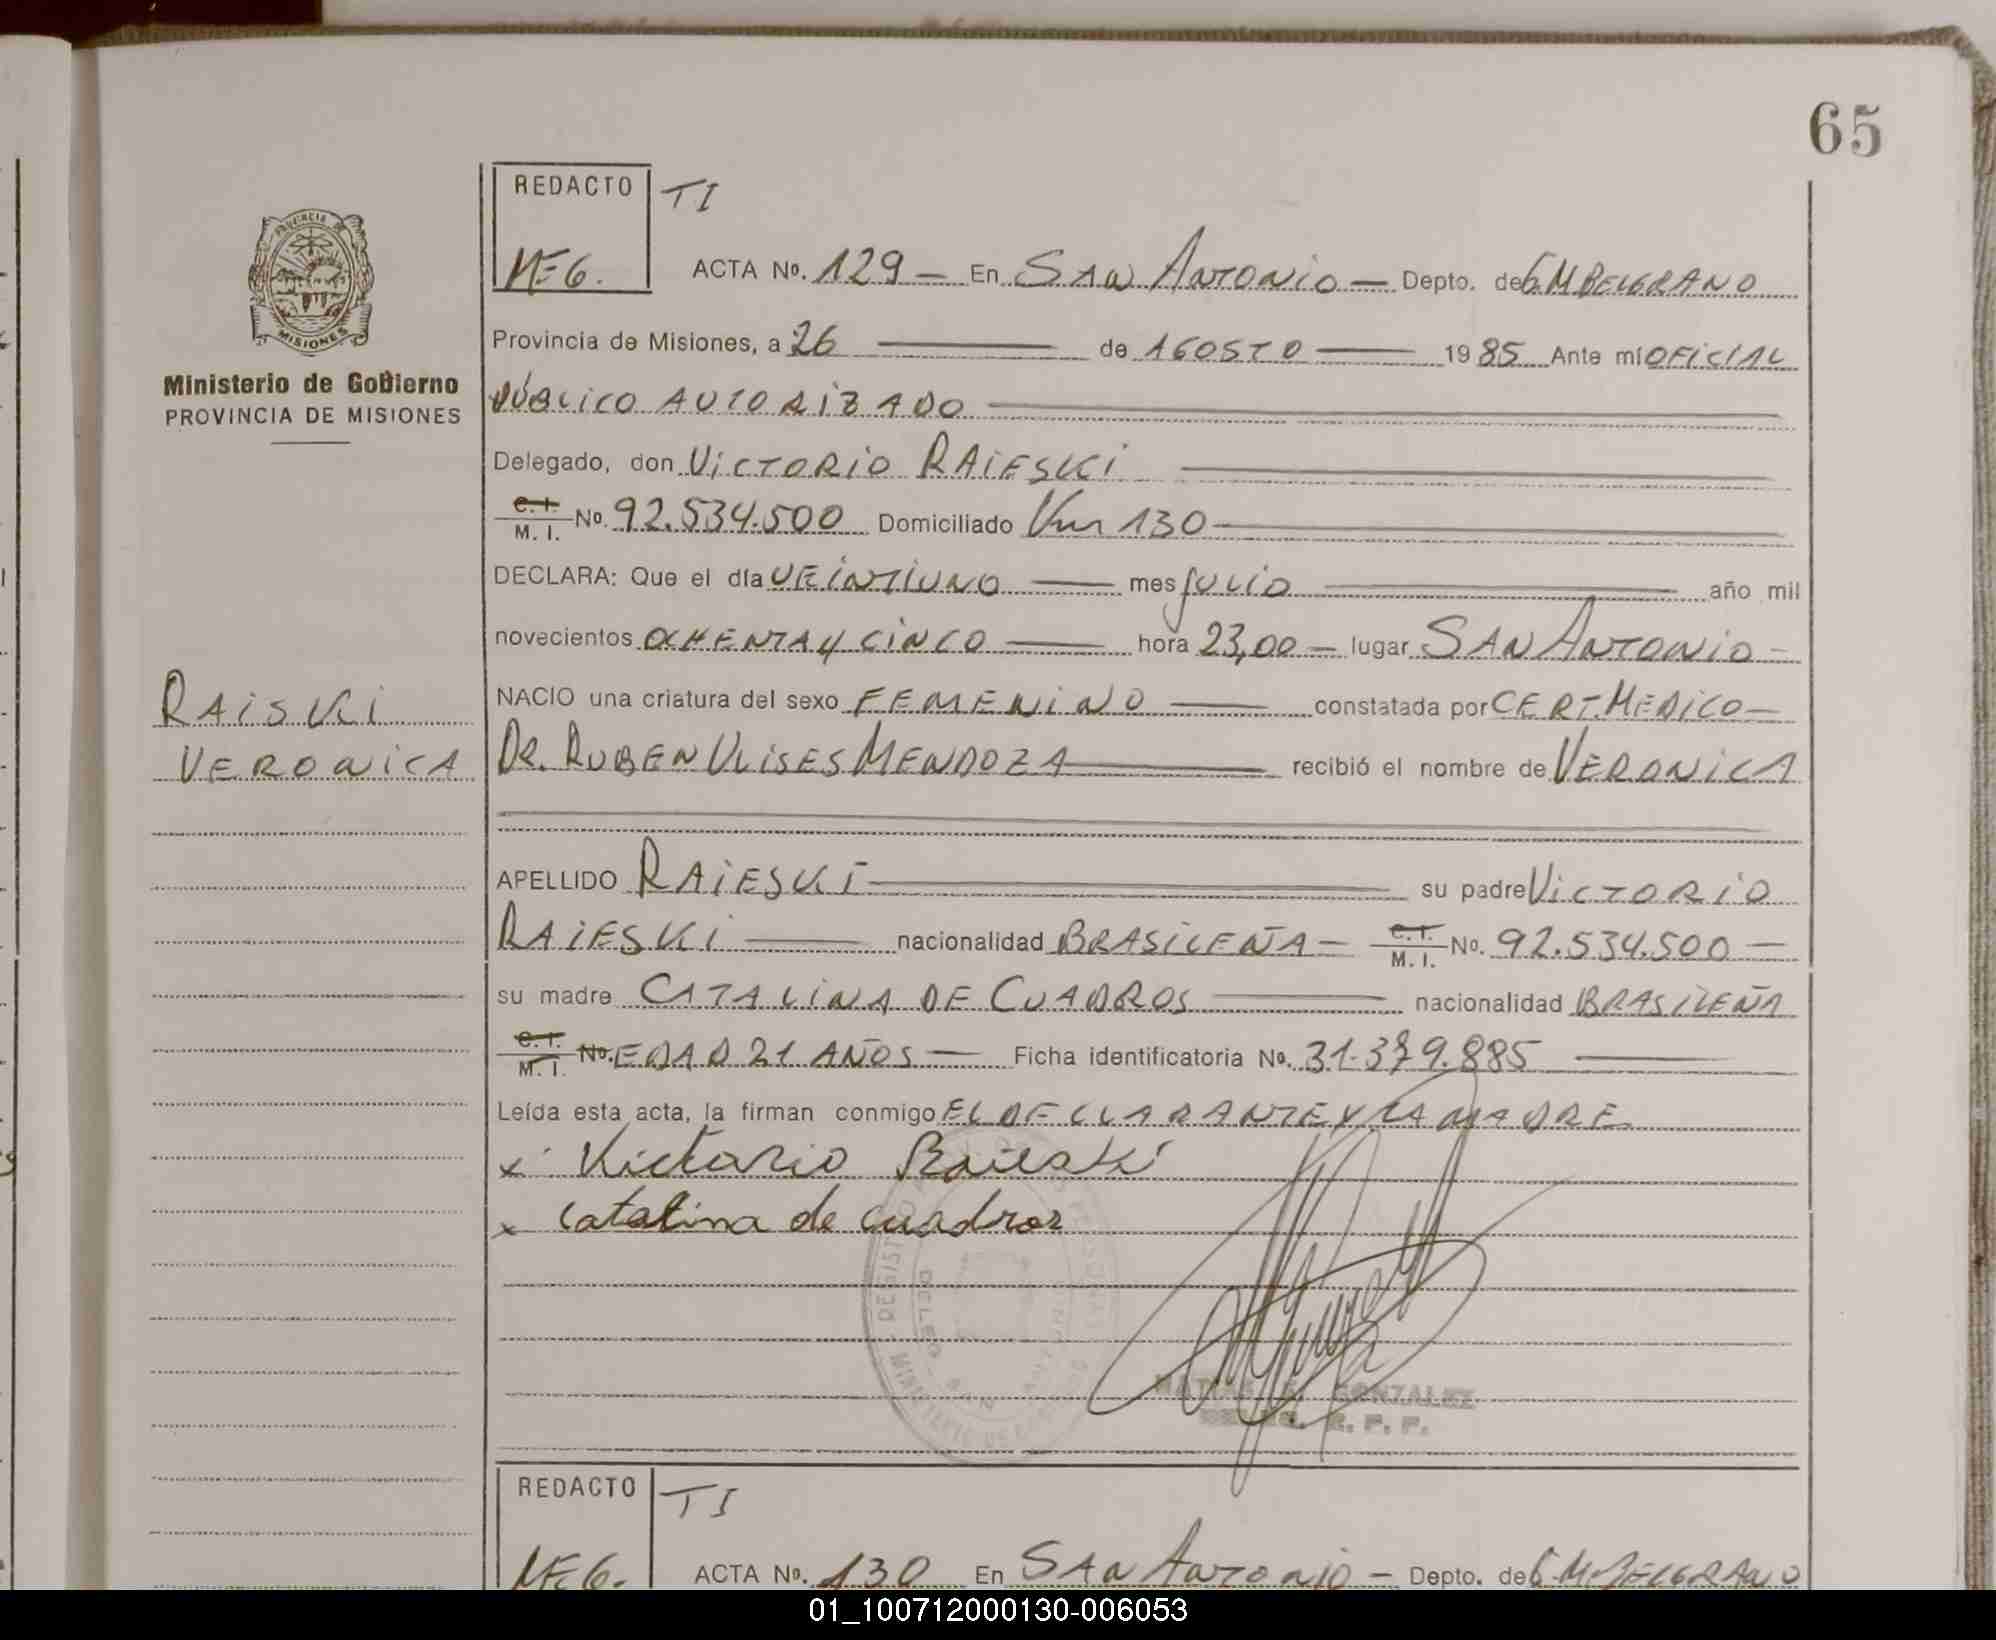 65
REDACTO TI
MEG.
ACTA Nº. 129 — En SAN ANTONIO — Depto. de G M BELGRANO
Provincia de Misiones, a 26 — de AGOSTO — 1985 Ante mí OFICIAL
PÚBLICO AUTORIZADO —
Delegado, don VICTORIO RAIESKI —
C. I. M. I. Nº. 92.534.500 Domiciliado Km 130 —
DECLARA: Que el día VEINTIUNO — mes JULIO — año mil
novecientos OCHENTA Y CINCO — hora 23,00 — lugar SAN ANTONIO —
NACIO una criatura del sexo FEMENINO — constatada por CERT. MEDICO —
DR. RUBEN ULISES MENDOZA — recibió el nombre de VERONICA
APELLIDO RAIESKI — su padre VICTORIO
RAIESKI — nacionalidad BRASILEÑA — C. I. M. I. Nº. 92.534.500 —
su madre CATALINA DE CUADROS — nacionalidad BRASILEÑA
C. I. M. I. Nº. EDAD 21 AÑOS — Ficha identificatoria Nº. 31.379.885 —
Leída esta acta, la firman conmigo EL DECLARANTE Y LA MADRE
x Victorio Raieski
x catalina de cuadros
GONZALEZ
R. P. P.
PROVINCIA DE
MISIONES
Ministerio de Gobierno
PROVINCIA DE MISIONES
RAISKI
VERONICA
REDACTO TI
MEG.
ACTA Nº. 130 En SAN ANTONIO — Depto. de G. M. BELGRANO
01_100712000130-006053